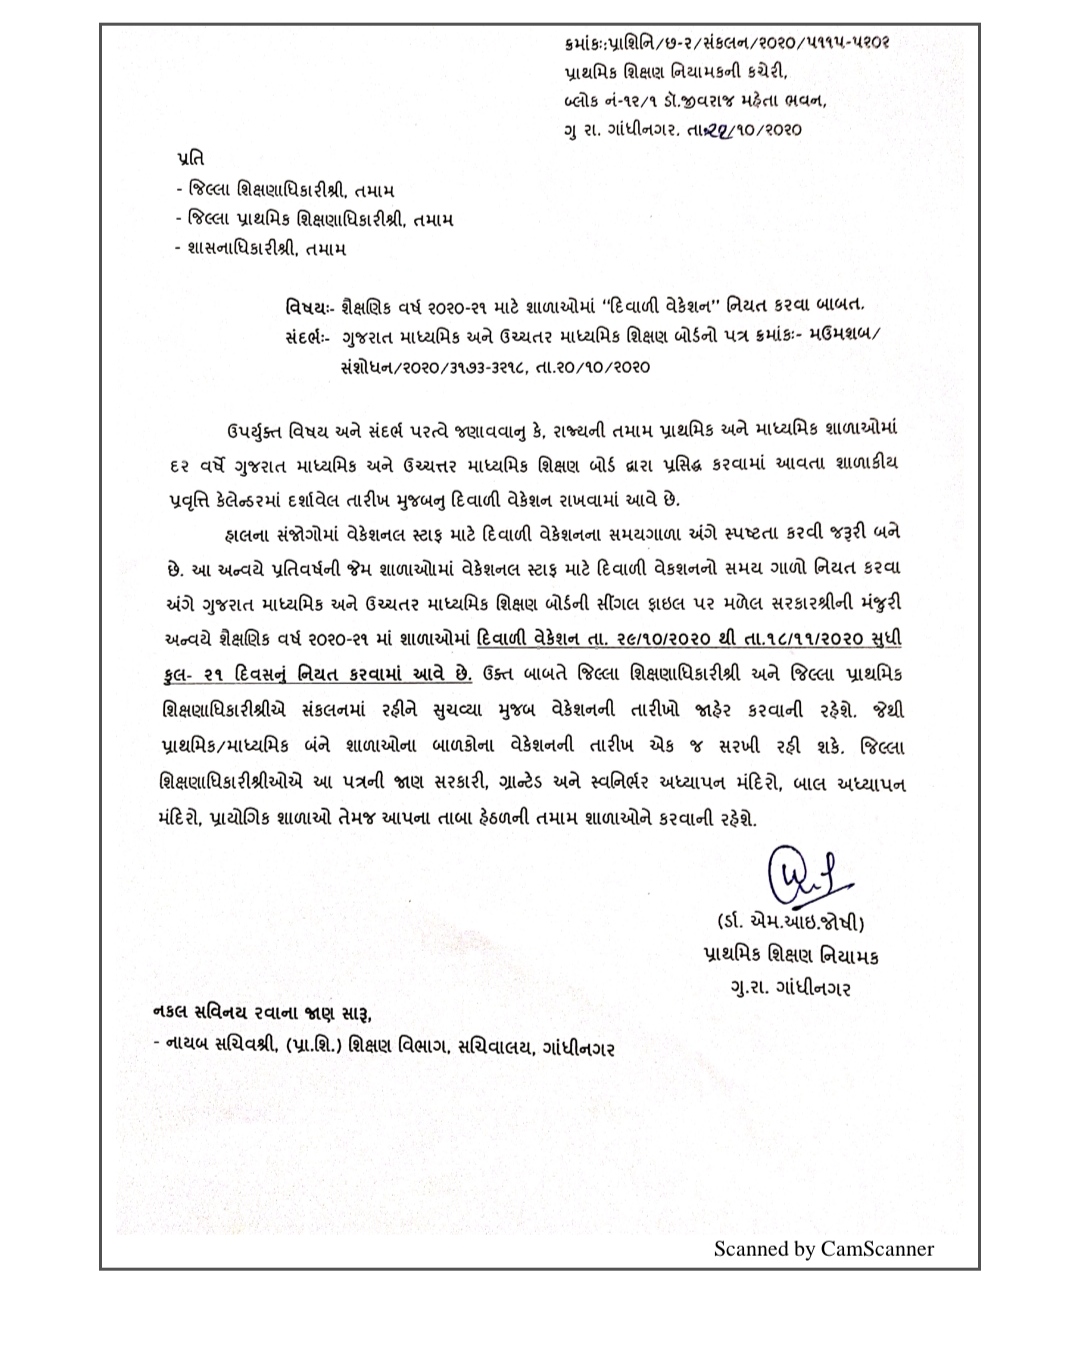 ક્રમાંકઃ:પ્રાશિનિ/છ-૨/સંકલન/૨૦૨૦/૫૧૧૫-૫૨૦૨
પ્રાથમિક શિક્ષણ નિયામકની કચેરી,
બ્લોક નં-૧૨/૧ ડૉ.જીવરાજ મહેતા ભવન,
ગુ રા. ગાંધીનગર. તા /૧૦/૨૦૨૦
પ્રતિ
- જિલ્લા શિક્ષણાધિકારીશ્રી, તમામ
- જિલ્લા પ્રાથમિક શિક્ષણાધિકારીશ્રી, તમામ
- શાસનાધિકારીશ્રી, તમામ
વિષયઃ- શૈક્ષણિક વર્ષ ૨૦૨૦-૨૧ માટે શાળાઓમાં "દિવાળી વેકેશન" નિયત કરવા બાબત.
સંદર્ભઃ- ગુજરાત માધ્યમિક અને ઉચ્ચતર માધ્યમિક શિક્ષણ બોર્ડનો પત્ર ક્રમાંકઃ- મઉમશબ/
સંશોધન/૨૦૨૦/૩૧૭૩-૩૨૧૮, તા.૨૦/૧૦/૨૦૨૦
ઉપર્યુક્ત વિષય અને સંદર્ભ પરત્વે જણાવવાનુ કે, રાજ્યની તમામ પ્રાથમિક અને માધ્યમિક શાળાઓમાં
દર વર્ષે ગુજરાત માધ્યમિક અને ઉચ્ચત્તર માધ્યમિક શિક્ષણ બોર્ડ દ્વારા પ્રસિદ્ધ કરવામાં આવતા શાળાકીય
પ્રવૃત્તિ કેલેન્ડરમાં દર્શાવેલ તારીખ મુજબનુ દિવાળી વેકેશન રાખવામાં આવે છે.
હાલના સંજોગોમાં વેકેશનલ સ્ટાફ માટે દિવાળી વેકેશનના સમયગાળા અંગે સ્પષ્ટતા કરવી જરૂરી બને
છે. આ અન્વયે પ્રતિવર્ષની જેમ શાળાઓમાં વેકેશનલ સ્ટાફ માટે દિવાળી વેકશનનો સમય ગાળો નિયત કરવા
અંગે ગુજરાત માધ્યમિક અને ઉચ્ચતર માધ્યમિક શિક્ષણ બોર્ડની સીંગલ ફાઇલ પર મળેલ સરકારશ્રીની મંજુરી
અન્વયે શૈક્ષણિક વર્ષ ૨૦૨૦-૨૧ માં શાળાઓમાં દિવાળી વેકેશન તા. ૨૯/૧૦/૨૦૨૦ થી તા.૧૮/૧૧/૨૦૨૦ સુધી
કુલ- ૨૧ દિવસનું નિયત કરવામાં આવે છે. ઉક્ત બાબતે જિલ્લા શિક્ષણાધિકારીશ્રી અને જિલ્લા પ્રાથમિક
શિક્ષણાધિકારીશ્રીએ સંકલનમાં રહીને સુચવ્યા મુજબ વેકેશનની તારીખો જાહેર કરવાની રહેશે. જેથી
પ્રાથમિક/માધ્યમિક બંને શાળાઓના બાળકોના વેકેશનની તારીખ એક જ સરખી રહી શકે. જિલ્લા
શિક્ષણાધિકારીશ્રીઓએ આ પત્રની જાણ સરકારી, ગ્રાન્ટેડ અને સ્વનિર્ભર અધ્યાપન મંદિરો, બાલ અધ્યાપન
મંદિરો, પ્રાયોગિક શાળાઓ તેમજ આપના તાબા હેઠળની તમામ શાળાઓને કરવાની રહેશે.
(ર્ડા. એમ.આઇ.જોષી)
પ્રાથમિક શિક્ષણ નિયામક
ગુ.રા. ગાંધીનગર
નકલ સવિનય રવાના જાણ સારૂ,
- નાયબ સચિવશ્રી, (પ્રા.શિ.) શિક્ષણ વિભાગ, સચિવાલય, ગાંધીનગર
Scanned by CamScanner